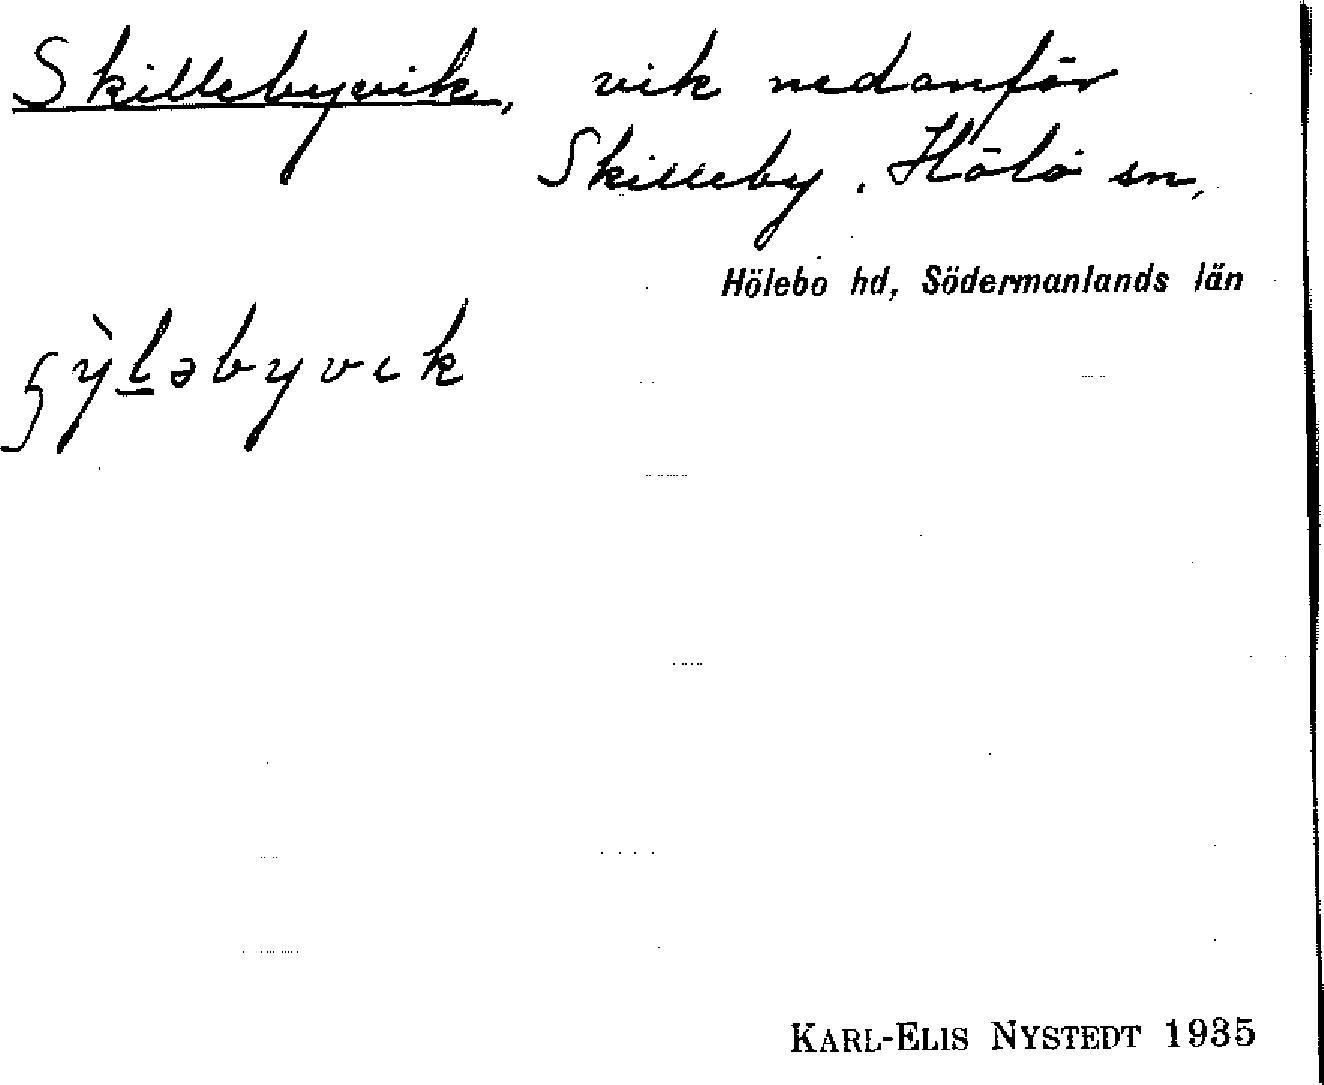 Skillebyvik, vik nedanför
Skilleby. Hölö sn,
Hölebo hd, Södermanlands län
ʂỳl̲əbyvık
KARL-ELIS NYSTEDT 1935